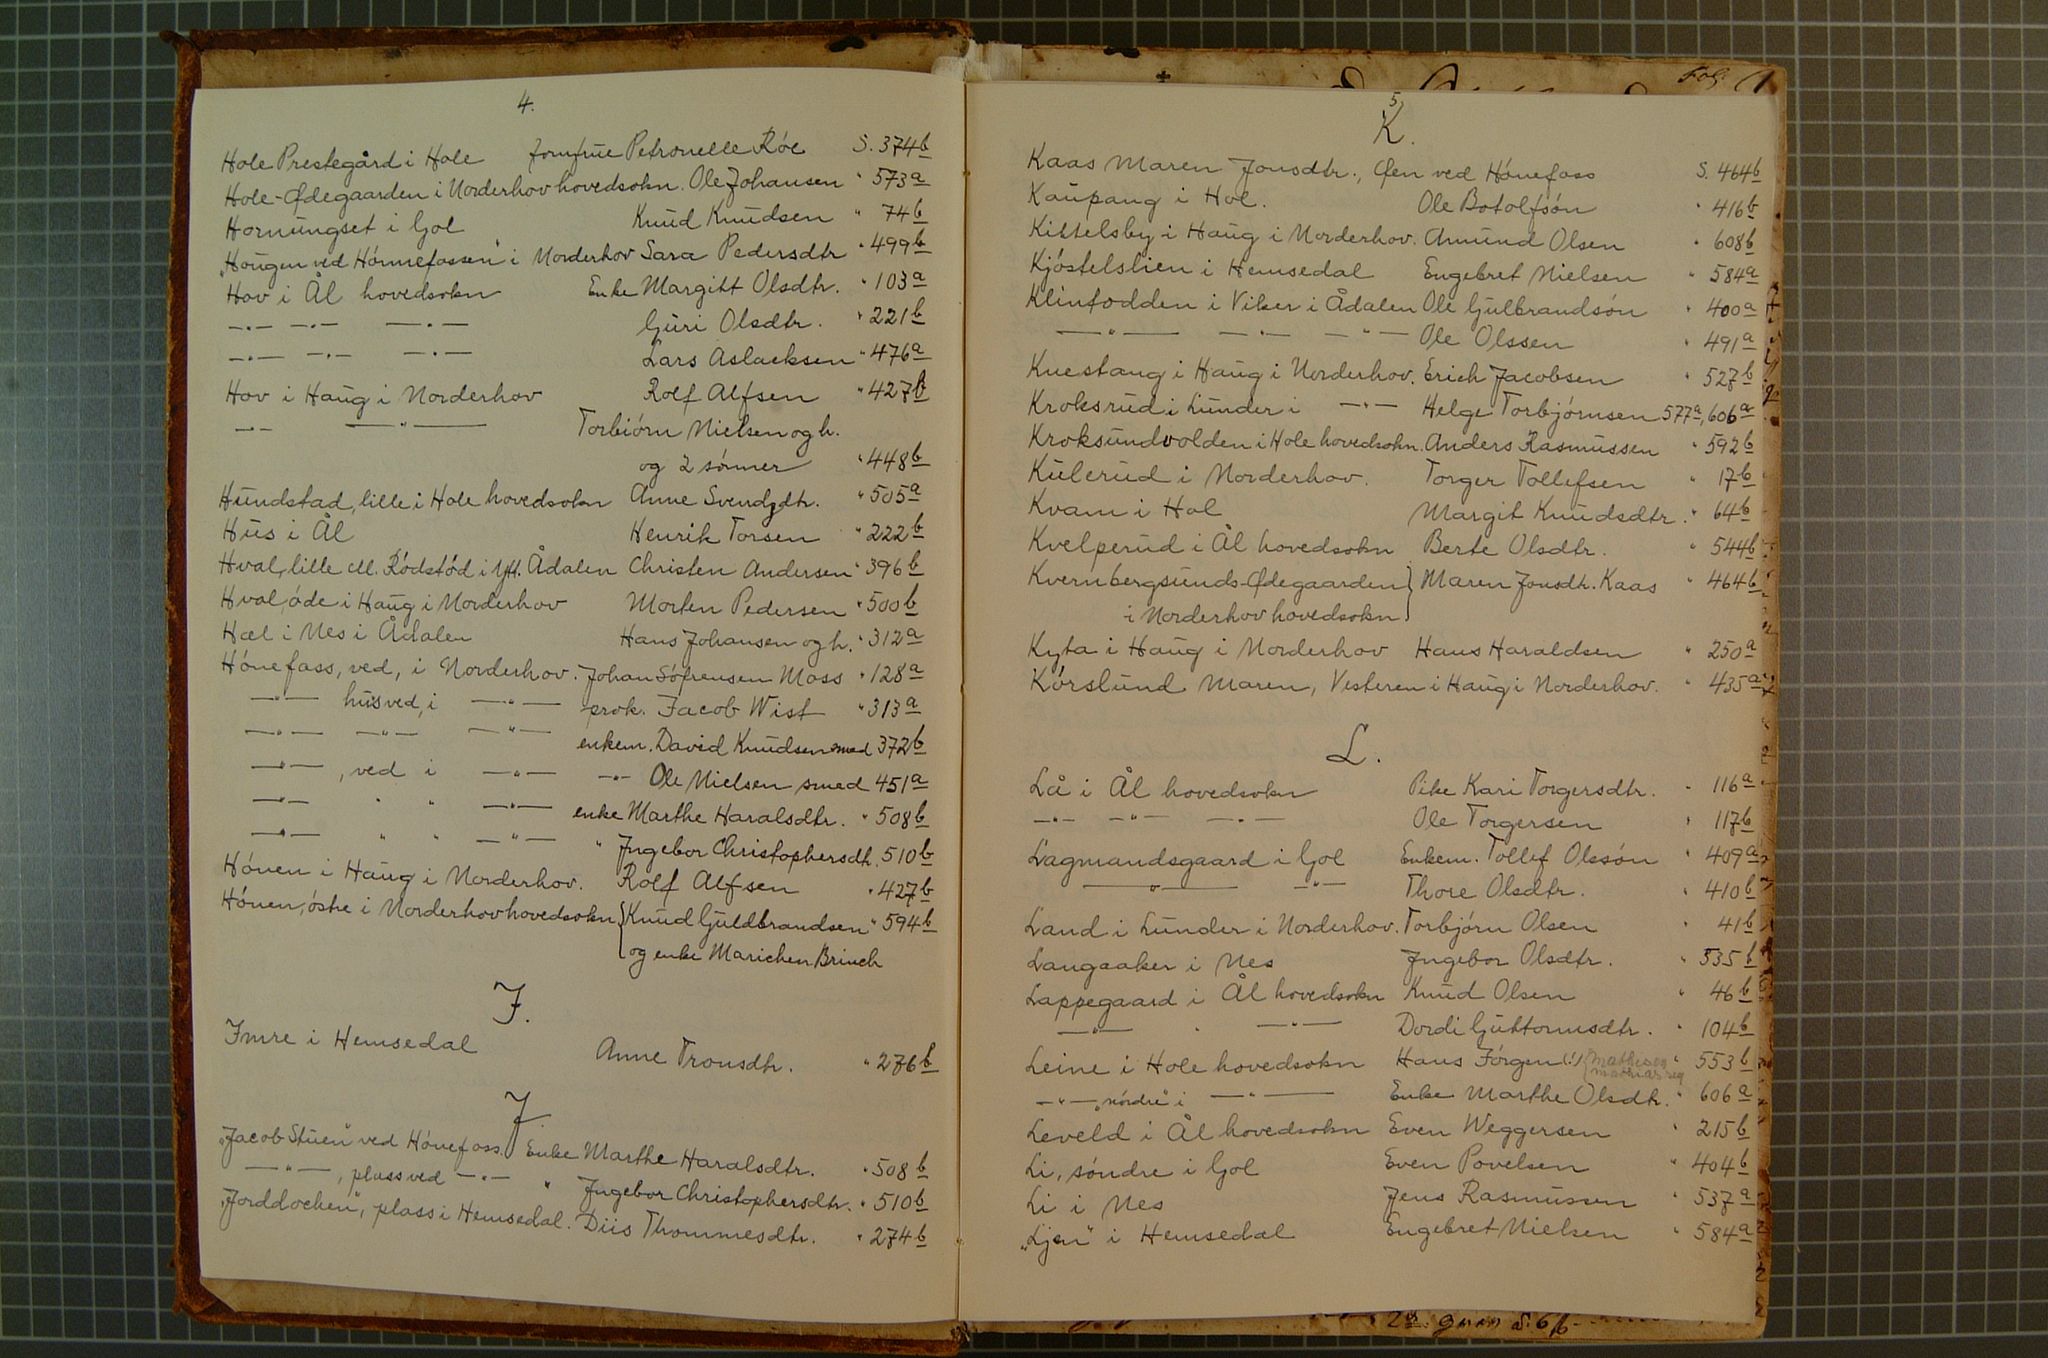 4.
Hole Prestegård i Hole Jomfrue Petronelle Róe S. 374b
Hole-Ødegaarden i Norderhov hovedsokn. Ole Johansen " 573a
Hornungset i Gol Knud Knudsen " 74b
„Hougen ved Hónnefossen" i Norderhov Sara Pedersdtr " 499b
Hov i Ål hovedsokn Enke Margitt Olsdtr. " 103a
—"— —"— —"— Guri Olsdtr. " 221b
—"— —"— —"— Lars Aslacksen " 476a
Hov i Haug i Norderhov Rolf Alfsen " 427b
—"— —"— Torbiórn Nielsen og h.
og 2 sónner " 448b
Hundstad, lille i Hole hovedsokn Anne Svendsdtr. " 505a
Hus i Ål Henrik Torsen " 222b
Hval, lille ell. Ródstód i Ytt. Ådalen Christen Andersen " 396b
Hval, óde i Haug i Norderhov Morten Pedersen " 500b
Hæl i Nes i Ådalen Hans Johansen og h. " 312a
Hónefoss, ved, i Norderhov. Johan Sófrensen Moss " 128a
—"— hus ved, i —"— prok. Jacob Wist " 313a
—"— —"— —"— enkem. David Knudsen smed 372b
—"—, ved i —"— —"— Ole Nielsen smed 451a
—"— " " —"— enke Marthe Haralsdtr. " 508b
—"— " " —"— " Ingebor Christophersdtr. 510b
Hónen i Haug i Norderhov. Rolf Alfsen " 427b
Hónen, óstre i Norderhov hovedsokn { Knud Guldbrandsen " 594b
og enke Marichen Brinch
I.
Imre i Hemsedal Anne Tronsdtr. " 276b
J.
„Jacob Stuen" ved Hónefoss. Enke Marthe Haralsdtr. " 508b
—"—, plass ved —"— " Ingebor Christophersdtr. " 510b
„Jorddocken", plass i Hemsedal. Diis Thommesdtr. " 274b
5
K.
Kaas Maren Jonsdtr., Øen ved Hónefoss S. 464b
Kaupang i Hol. Ole Botolfsón " 416b
Kittelsby i Haug i Norderhov. Amund Olsen " 608b
Kjóstelslien i Hemsedal Engebret Nielsen " 584a
Klinfodden i Viker i Ådalen Ole Gulbrandsón " 400a
—"— —"— —"— Ole Olssen " 491a
Knestang i Haug i Norderhov. Erich Jacobsen " 527b
Kroksrud i Lunder i —"— Helge Torbjórnsen 577a, 606a
Kroksundvolden i Hole hovedsokn. Anders Rasmussen " 592b
Kulerud i Norderhov. Torger Tollefsen " 17b
Kvam i Hol Margit Knudsdtr. " 64b
Kvelperud i Ål hovedsokn Berte Olsdtr. " 544b
Kvernbergsunds-Ødegaarden } Maren Jonsdtr. Kaas " 464b
i Norderhov hovedsokn
Kyta i Haug i Norderhov Hans Haraldsen " 250a
Kórslund Maren, Vesteren i Haug i Norderhov. " 435a
L.
Lå i Ål hovedsokn Pike Kari Torgersdtr. " 116a
—"— —"— —"— Ole Torgersen " 117b
Lagmandsgaard i Gol Enkem. Tollef Olssón " 409a
—"— —"— Thore Olsdtr. " 410b
Land i Lunder i Norderhov. Torbjórn Olsen " 41b
Langaaker i Nes Ingebor Olsdtr. " 335b
Lappegaard i Ål hovedsokn Knud Olsen " 46b
—"— " —"— Dordi Guttormsdtr. " 104b
Leine i Hole hovedsokn Hans Jórgen (!) " 553b
—"— „nórdre" i —"— Enke Marthe Olsdtr. " 606a
Leveld i Ål hovedsokn Even Weggersen " 215b
Li, sóndre i Gol Even Povelsen " 404b
Li i Nes Jens Rasmussen " 537a
„Ljen" i Hemsedal Engebret Nielsen " 584a